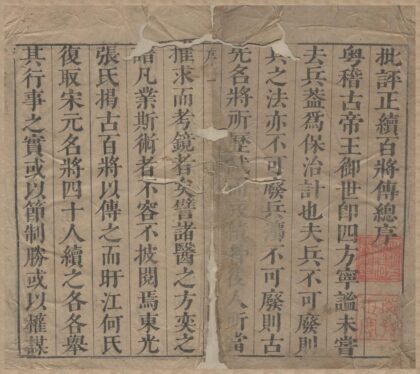 批評正續百將傳總序
粤稽古帝王御世卽四方寧謐未嘗
去兵蓋爲保治計也夫兵不可廢則
兵之法亦不可廢兵 不可廢則古
先名將所歷 人所當
推求而考鏡者矣譬諸醫之方奕之
譜凡業斯術者不容不披閱焉東光
張氏揭古百將以傳之而旴江何氏
復取宋元名將四十人續之各各舉
其行事之實或以節制勝或以權謀